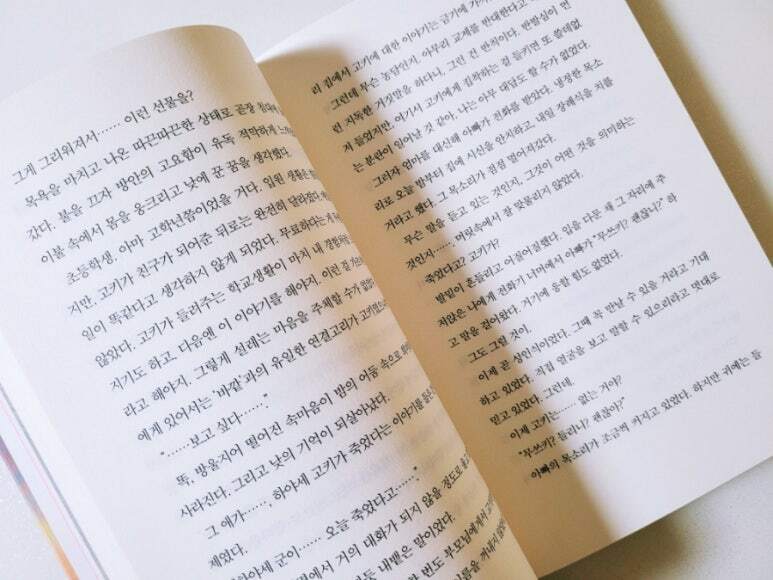 그게 그리워져서…… 이런 선물을?
목욕을 마치고 나온 따끈따끈한 상태로 곧장
갔다. 불을 끄자 방안의 고요함이 유독 적막하게
이불 속에서 몸을 웅크리고 낮에 꾼 꿈을 생각했다.
초등학생. 아마 고학년쯤이었을 거다. 입원 생활은
지만, 고키가 친구가 되어준 뒤로는 완전히 달라졌다.
일이 똑같다고 생각하지 않게 되었다. 무료하다는
않았다. 고키가 들려주는 학교생활이 마치 내
저기도 하고, 다음엔 이 이야기를 해야지. 이런 걸
라고 해야지. 그렇게 설레는 마음을 주체할 수가 없었다.
에게 있어서는 '바깥'과의 유일한 연결고리가
"……보고 싶다……."
뚝, 방울지어 떨어진 속마음이 밤의 어둠 속으로
사라진다. 그리고 낮의 기억이 되살아났다.
그 애가……, 하야세 고키가 죽었다는 이야기를
"하야세 군이…… 오늘 죽었다고……."
제였다.
면에서 거의 대화가 되지 않을 정도로
내뱉은 말이었다.
번도 부모님에게서 고키
리 집에서 고키에 대한 이야기는 금기에
그런데 무슨 농담인지. 아무리 교제를 반대한다고
런 지독한 거짓말을 하다니, 그런 건 반칙이다. 반발심이 먼
저 들었지만, 여기서 고키에게 집착하는 걸 들키면 또 쓸데없
는 분란이 일어날 것 같아, 나는 아무 대답도 할 수가 없었다.
그러자 엄마를 대신해 아빠가 전화를 받았다. 냉정한 목소
리로 오늘 밤부터 집에 시신을 안치하고, 내일 장례식을 치를
거라고 했다. 그 목소리가 점점 멀어져갔다.
무슨 말을 듣고 있는 것인지, 그것이 어떤 것을 의미하는
것인지……, 머릿속에서 잘 맞물리지 않았다.
죽었다고? 고키가?
발밑이 흔들리고 어질어질했다. 입을 다문 채 그 자리에 주
저앉은 나에게 전화기 너머에서 아빠가 "무쓰키? 괜찮니?" 하
고 말을 걸어왔다. 거기에 응할 힘도 없었다.
그도 그럴 것이.
이제 곧 성인식이었다. 그때 꼭 만날 수 있을 거라고 기대
하고 있었다. 직접 얼굴을 보고 말할 수 있으리라고 멋대로
믿고 있었다. 그런데.
이제 고키는…… 없는 거야?
"무쓰키? 들리니? 괜찮아?"
아빠의 목소리가 조금씩 커지고 있었다. 하지만 귀에는 들